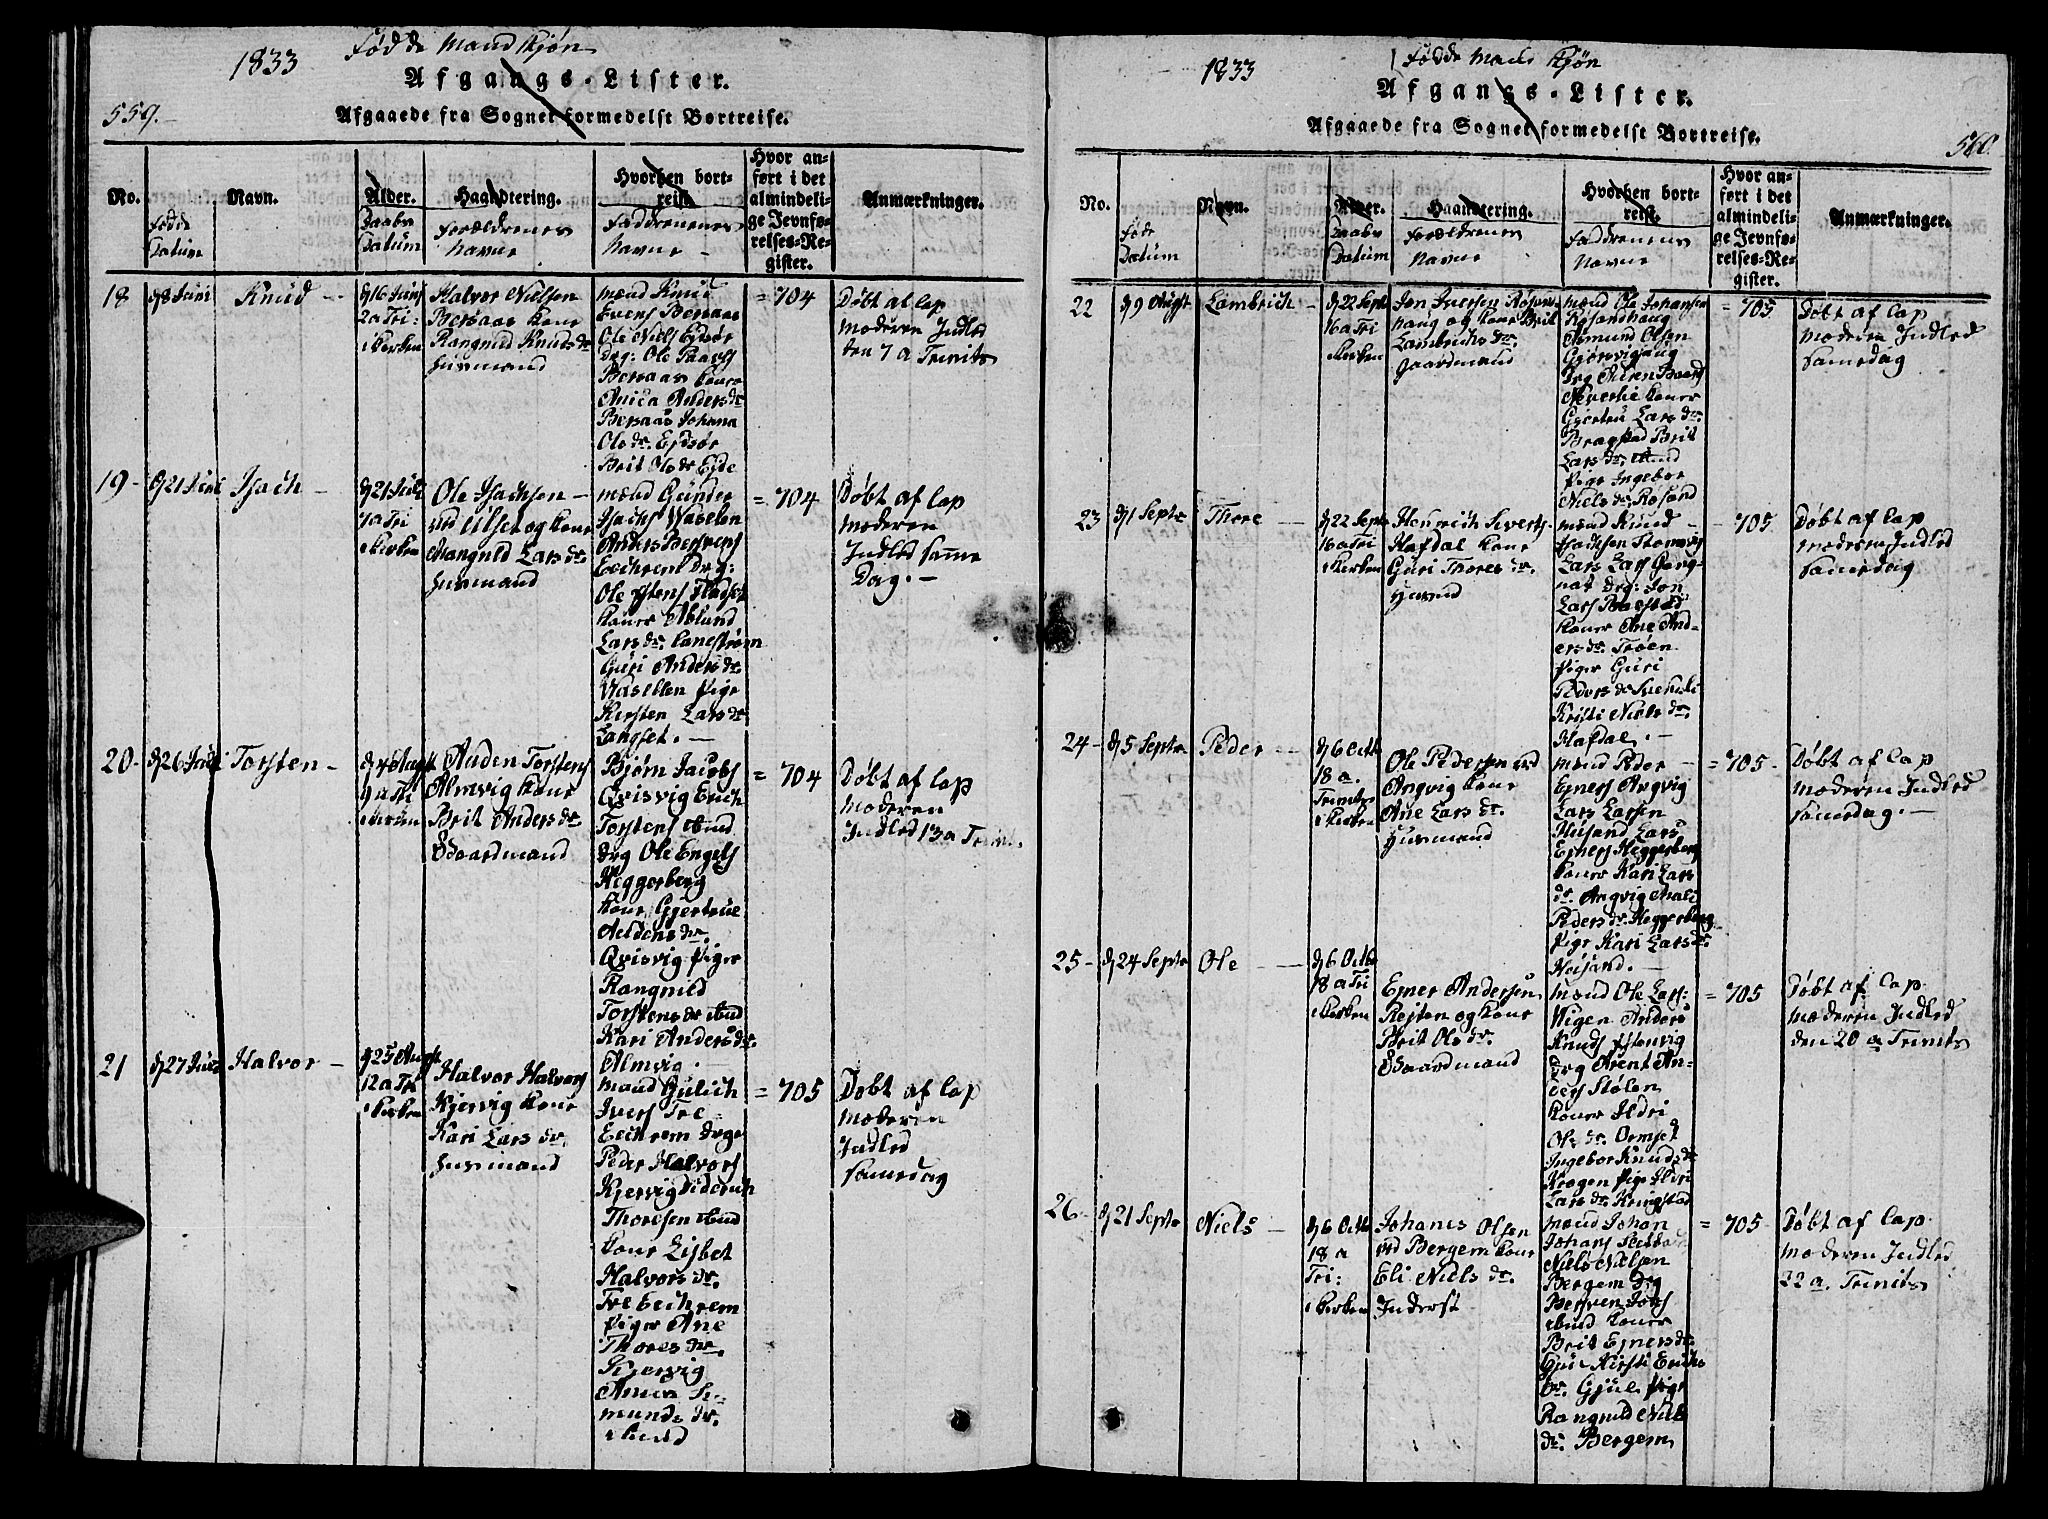 1833 Fødde Mandkjøn
Afgangs-Lister.
559.
Afgaaede fra Sognet formedelst Bortreise.
No.
Fødde Datum
Navn.
Alder.
Daabs Datum
Haandtering.
Forældrenes Navne
Hvorhen bortreist.
Faddrenenes Navne
Hvor anført i det almindelige Jevnførelses-Register.
Anmærkninger.
18
d 8 Juni
Knud
d 16 Juni
2 a Tri:
i Kirken
Halvor Nielsen
Bersaas Kone
Rangnild Knudsdr
Husmand
Mænd Knud
Evens Bersaas
Ole Niels Eydsør
Drg: Ole Paars
Bersaas Koner
Anica Andersdr
Bersaas Johana
Olsdr. Eydsør
Brit Olsdr Eide
= 704
Døbt af Cap
Moderen Indled
den 7 a Trinits
19
d 21 Juli
Isach
d 21 Juli
7 a Tri
i Kirken
Ole Isachsen
Ulset og Kone
Rangnild Larsdr
Husmand
Mænd Gunder
Isachs Waselen
Anders Bersvens
Eechrem Drg:
Ole Østens Fladset
Koner Ablund
Larsdr.
Guri Andersdr
Waselen Pige
Kersten Larsdr
Langset.
= 704
Døbt af Cap
Moderen
Indled samme
Dag.
20
d 26 Juli
Torsten
d 4 Augst
9 a Tri
i Kirken
Anden Torstens
Almvig Kone
Brit Andersdr
Gaardmand
Bjørn Jacobs
Qvisvig Erich
Torstens ibud
Drg Ole Engels
Heggerberg
Kone Gjertrue
Aeldensdr.
Qvisvig Piger
Rangnild
Torstensdr ibud
Kari Andersdr.
Almvig.
= 704
Døbt af Cap
Moderen
Indled 13 a Trinit.
21
d 27 Juli
Halvor
d 25 Augst
12 a Tri
i Kirken
Halvor Halvors
Kjervig Kone
Kari Larsdr.
Husmand
Mænd Gulich
Ivers Tre
Eechrem Drge
Peder Halvors
Kjervig Diderich
Thoresen ibud
Kone Lisbet
Halvorsdr.
Tre Eechrem
Piger Ane
Thoresdr.
Kjervig
Anne Si-
mundsdr.
ibud
= 705
Døbt af Cap
Moderen
Indled
samedag
1833 Fødde Mands Kjøn
Afgangs-Lister.
Afgaaede fra Sognet formedelst Bortreise.
560.
No.
Føde Datum
Navn.
Alder.
Daabs Datum
Haandtering.
Forældrenes Navne
Hvorhen bortreist.
Faddrenenes Navne
Hvor anført i det almindelige Jevnførelses-Register.
Anmærkninger.
22
d 9 Augst
Lambrich
d 22 Septr
16 a Tri
i Kirken
Jon Iversen Røsand-
haug og Kone Brit
Lambrichsdr.
Gaardmand
Mænd Ole Johansen
Røsandhaug
Asmund Olsen
Gjørsvighaug
Drg Auden Baars
Neverlie Koner
Gjertru Larsdr.
Bragstad Brit
Larsdr. ibud
Pige Ingebor
Nielsdr. Røsand
= 705
Døbt af Cap
Moderen Indled
samedag
23
d 1 Septr
Thore
d 22 Septr
16 a Tri
i Kirken
Henrich Siverts
Hafdal Kone
Guri Thoresdr.
Husmd
Mænd Knud
Isachsen Thomvig
Lars Lars Geng-
nat Drg: Jon
Lars Bæstad
Koner Ane And-
ersdr. Trøen
Piger Guri
Pedersdr
Kristi Nielsdr.
Hafdal.
705
Døbt af Cap
Moderen Indled
samedag
24
d 5 Septr
Peder
d 6 Octb
18 a.
Trinits
i Kirken
Ole Pedersen ved
Angvig Kone
Ane Larsdr.
Husmand
Mænd Peder
Ejners Angvig
Lars Larsen
Husand Lars
Ejners Heggerberg
Koner Kari Lars
dr. Angvig Mali
Pedersdr. Heggerberg
Pige Kari Larsdr
Husand.
= 705
Døbt af Cap
Moderen Indled
samedag.
25
d 24 Septr
Ole
d 6 Octb
18 a Tri
i Kirken
Ejner Andersen
Rejten og Kone
Brit Olsdr.
Gaardmand
Mænd Ole Lars:
Wigen Anders
Knuds Ystenvig
Drg Arent An-
ders Stølen
Koner Ildri
Olsdr. Ormset
Ingebor Knudsdr
Krogen Pige Ildri
Larsdr. Kringstad
= 705
Døbt af Cap.
Moderen Indled
den 20 a Trinits
26
d 21 Septr
Niels
d 6 Octb
18 a
Tri:
i Kirken
Johanes Olsen
ved Bergem Kone
Eli Nielsdr.
Inderst
Mænd Johan
Johans
Niels Nielsen
Bergem Drg
Bersven Jons
ibud Koner
Brit Ejnersdr.
Gjul Kirsti Erichs
dr. Gjul Pige
Rangnild Niels
dr. Bergem
= 705
Døbt af Cap.
Moderen Indled
22 a. Trinits